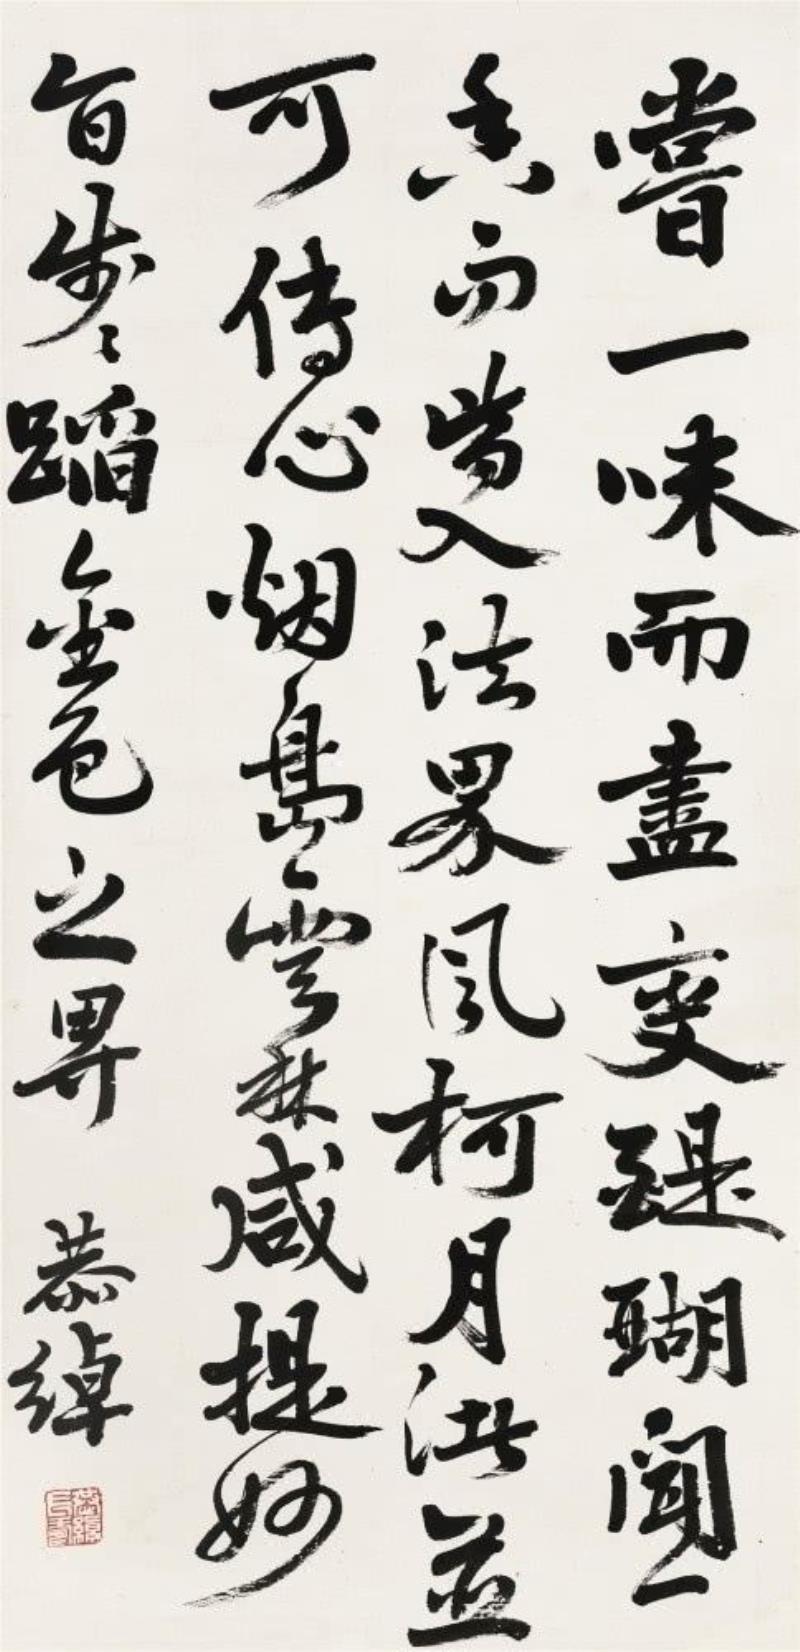 嘗一味而盡變醍醐聞一
香而皆入法界風柯月渚並
可傳心烟島雲林咸提妙
旨步〻蹈金色之界
恭綽